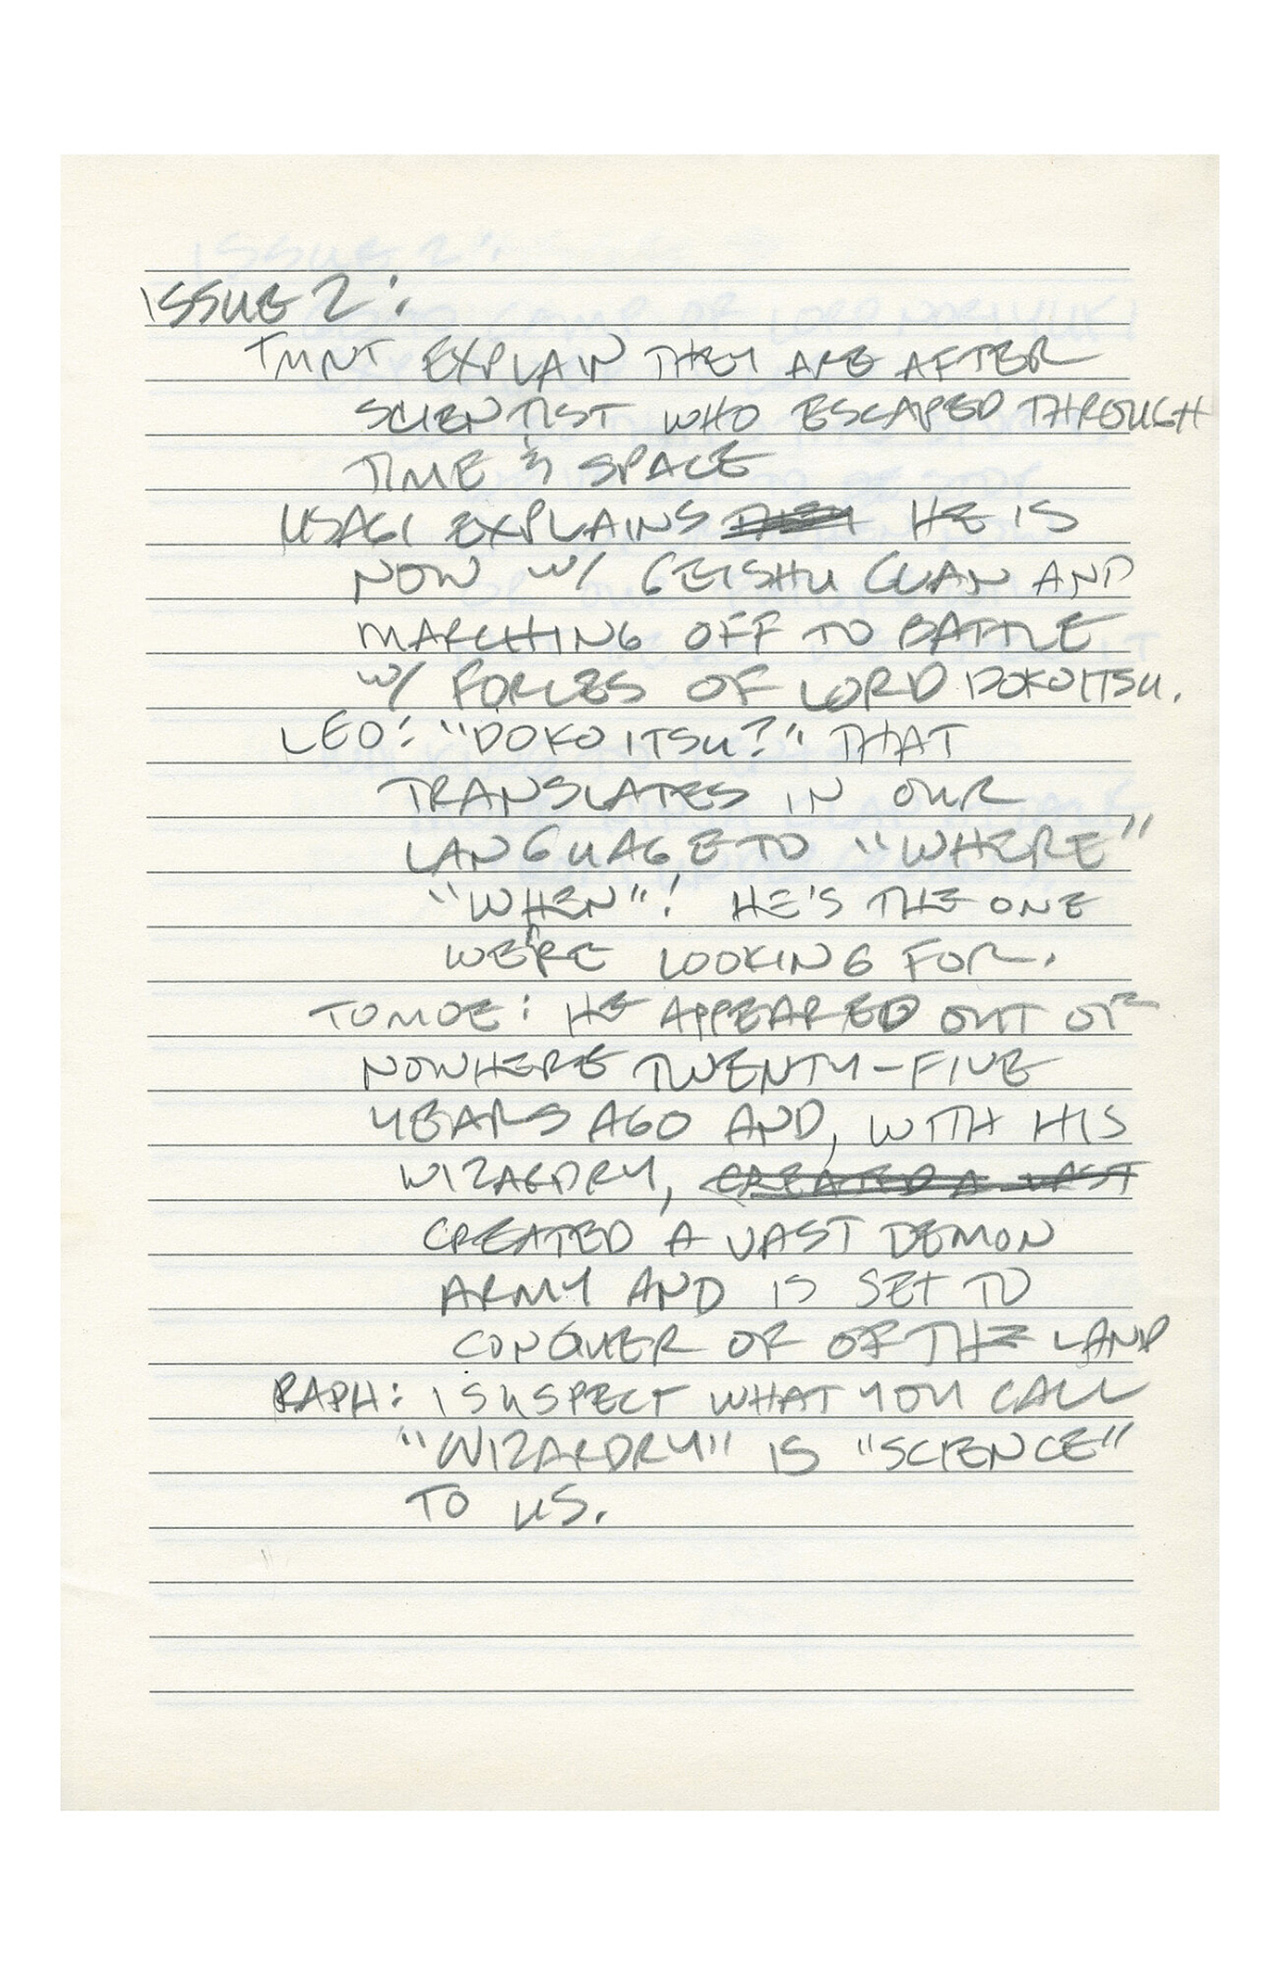 ISSUE 2:
TMNT EXPLAIN THEY ARE AFTER
SCIENTIST WHO ESCAPED THROUGH
TIME & SPACE
USAGI EXPLAINS THEY HE IS
NOW W/ GEISHU CLAN AND
MARCHING OFF TO BATTLE
W/ FORCES OF LORD DOKOITSU.
LEO: "DOKOITSU?" THAT
TRANSLATES IN OUR
LANGUAGE TO "WHERE"
"WHEN"! HE'S THE ONE
WE'RE LOOKING FOR.
TOMOE: HE APPEARED OUT OF
NOWHERE TWENTY-FIVE
YEARS AGO AND, WITH HIS
WIZARDRY, CREATED A VAST
CREATED A VAST DEMON
ARMY AND IS SET TO
CONQUER OF OF THE LAND
RAPH: I SUSPECT WHAT YOU CALL
"WIZARDRY" IS "SCIENCE"
TO US.